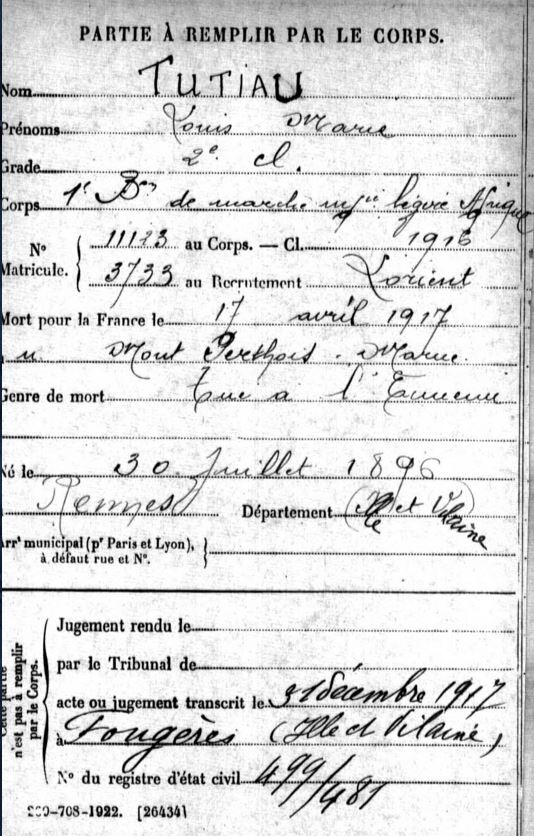 PARTIE À REMPLIR PAR LE CORPS.
Nom TUTIAU
Prénoms Louis Marie
Grade 2e cl.
Corps 1r Bon de marche infie légère Afrique
No Matricule. 11123 au Corps. — Cl. 1916
3733 au Recrutement Lorient
Mort pour la France le 17 avril 1917
Mont Perthois. Marne.
Genre de mort Tué a l'Ennemi
Né le 30 Juillet 1896
Rennes Département (Ille et Vilaine)
Arrt municipal (pr Paris et Lyon),
à défaut rue et No.
Cette partie
n'est pas à remplir
par le Corps.
Jugement rendu le
par le Tribunal de
acte ou jugement transcrit le 31 décembre 1917
à Fougères (Ille et Vilaine)
No du registre d'état civil 499/481
-708-1922. [26434]